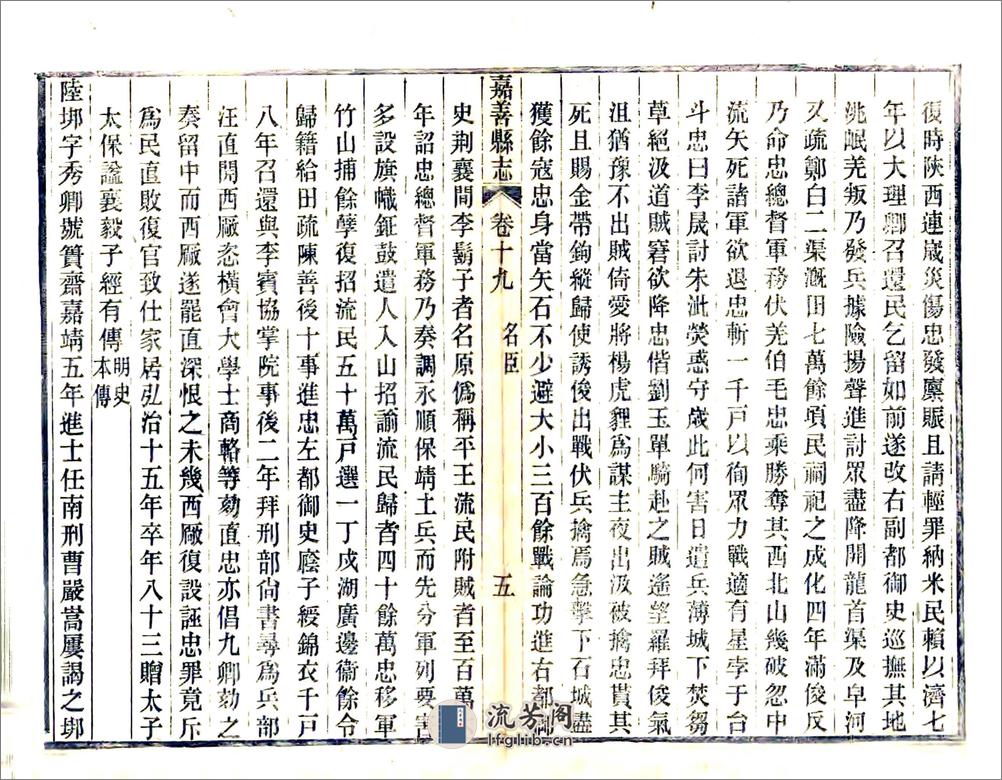 復時陝西連歲災傷忠發廩賑且請輕罪納米民賴以濟七
年以大理卿召還民乞留如前遂改右副都御史巡撫其地
洮岷羌叛乃發兵據險揚聲進討眾盡降開龍首渠及皁河
又疏鄭白二渠溉田七萬餘頃民祠祀之成化四年滿俊反
乃命忠總督軍務伏羌伯毛忠乘勝奪其西北山幾破忽中
流矢死諸軍欲退忠斬一千戸以徇眾力戰適有星孛于台
斗忠曰李晟討朱泚熒惑守歲此何害日遣兵薄城下焚芻
草絕汲道賊窘欲降忠偕劉玉單騎赴之賊遙望羅拜俊氣
沮猶豫不出賊倚愛將楊虎貍爲謀主夜出汲被擒忠貰其
死且賜金帶鉤縱歸使誘俊出戰伏兵擒焉急擊下石城盡
獲餘寇忠身當矢石不少避大小三百餘戰論功進右都御
嘉善縣志 卷十九 名臣 五
史荆襄間李鬍子者名原僞稱平王流民附賊者至百萬
年詔忠總督軍務乃奏調永順保靖土兵而先分軍列要害
多設旗幟鉦鼓遣人入山招諭流民歸者四十餘萬忠移軍
竹山捕餘孽復招流民五十萬戸選一丁戍湖廣邊衞餘令
歸籍給田疏陳善後十事進忠左都御史廕子綬錦衣千戸
八年召還與李賓協掌院事後二年拜刑部尚書尋爲兵部
汪直開西厰恣橫會大學士商輅等劾直忠亦倡九卿劾之
奏留中而西厰遂罷直深恨之未幾西厰復設誣忠罪竟斥
爲民直敗復官致仕家居弘治十五年卒年八十三贈太子
太保諡襄毅子經有傳明史本傳
陸垹字秀卿號簣齋嘉靖五年進士任南刑曹嚴嵩屢謁之垹
流芳阁
lfglib.cn